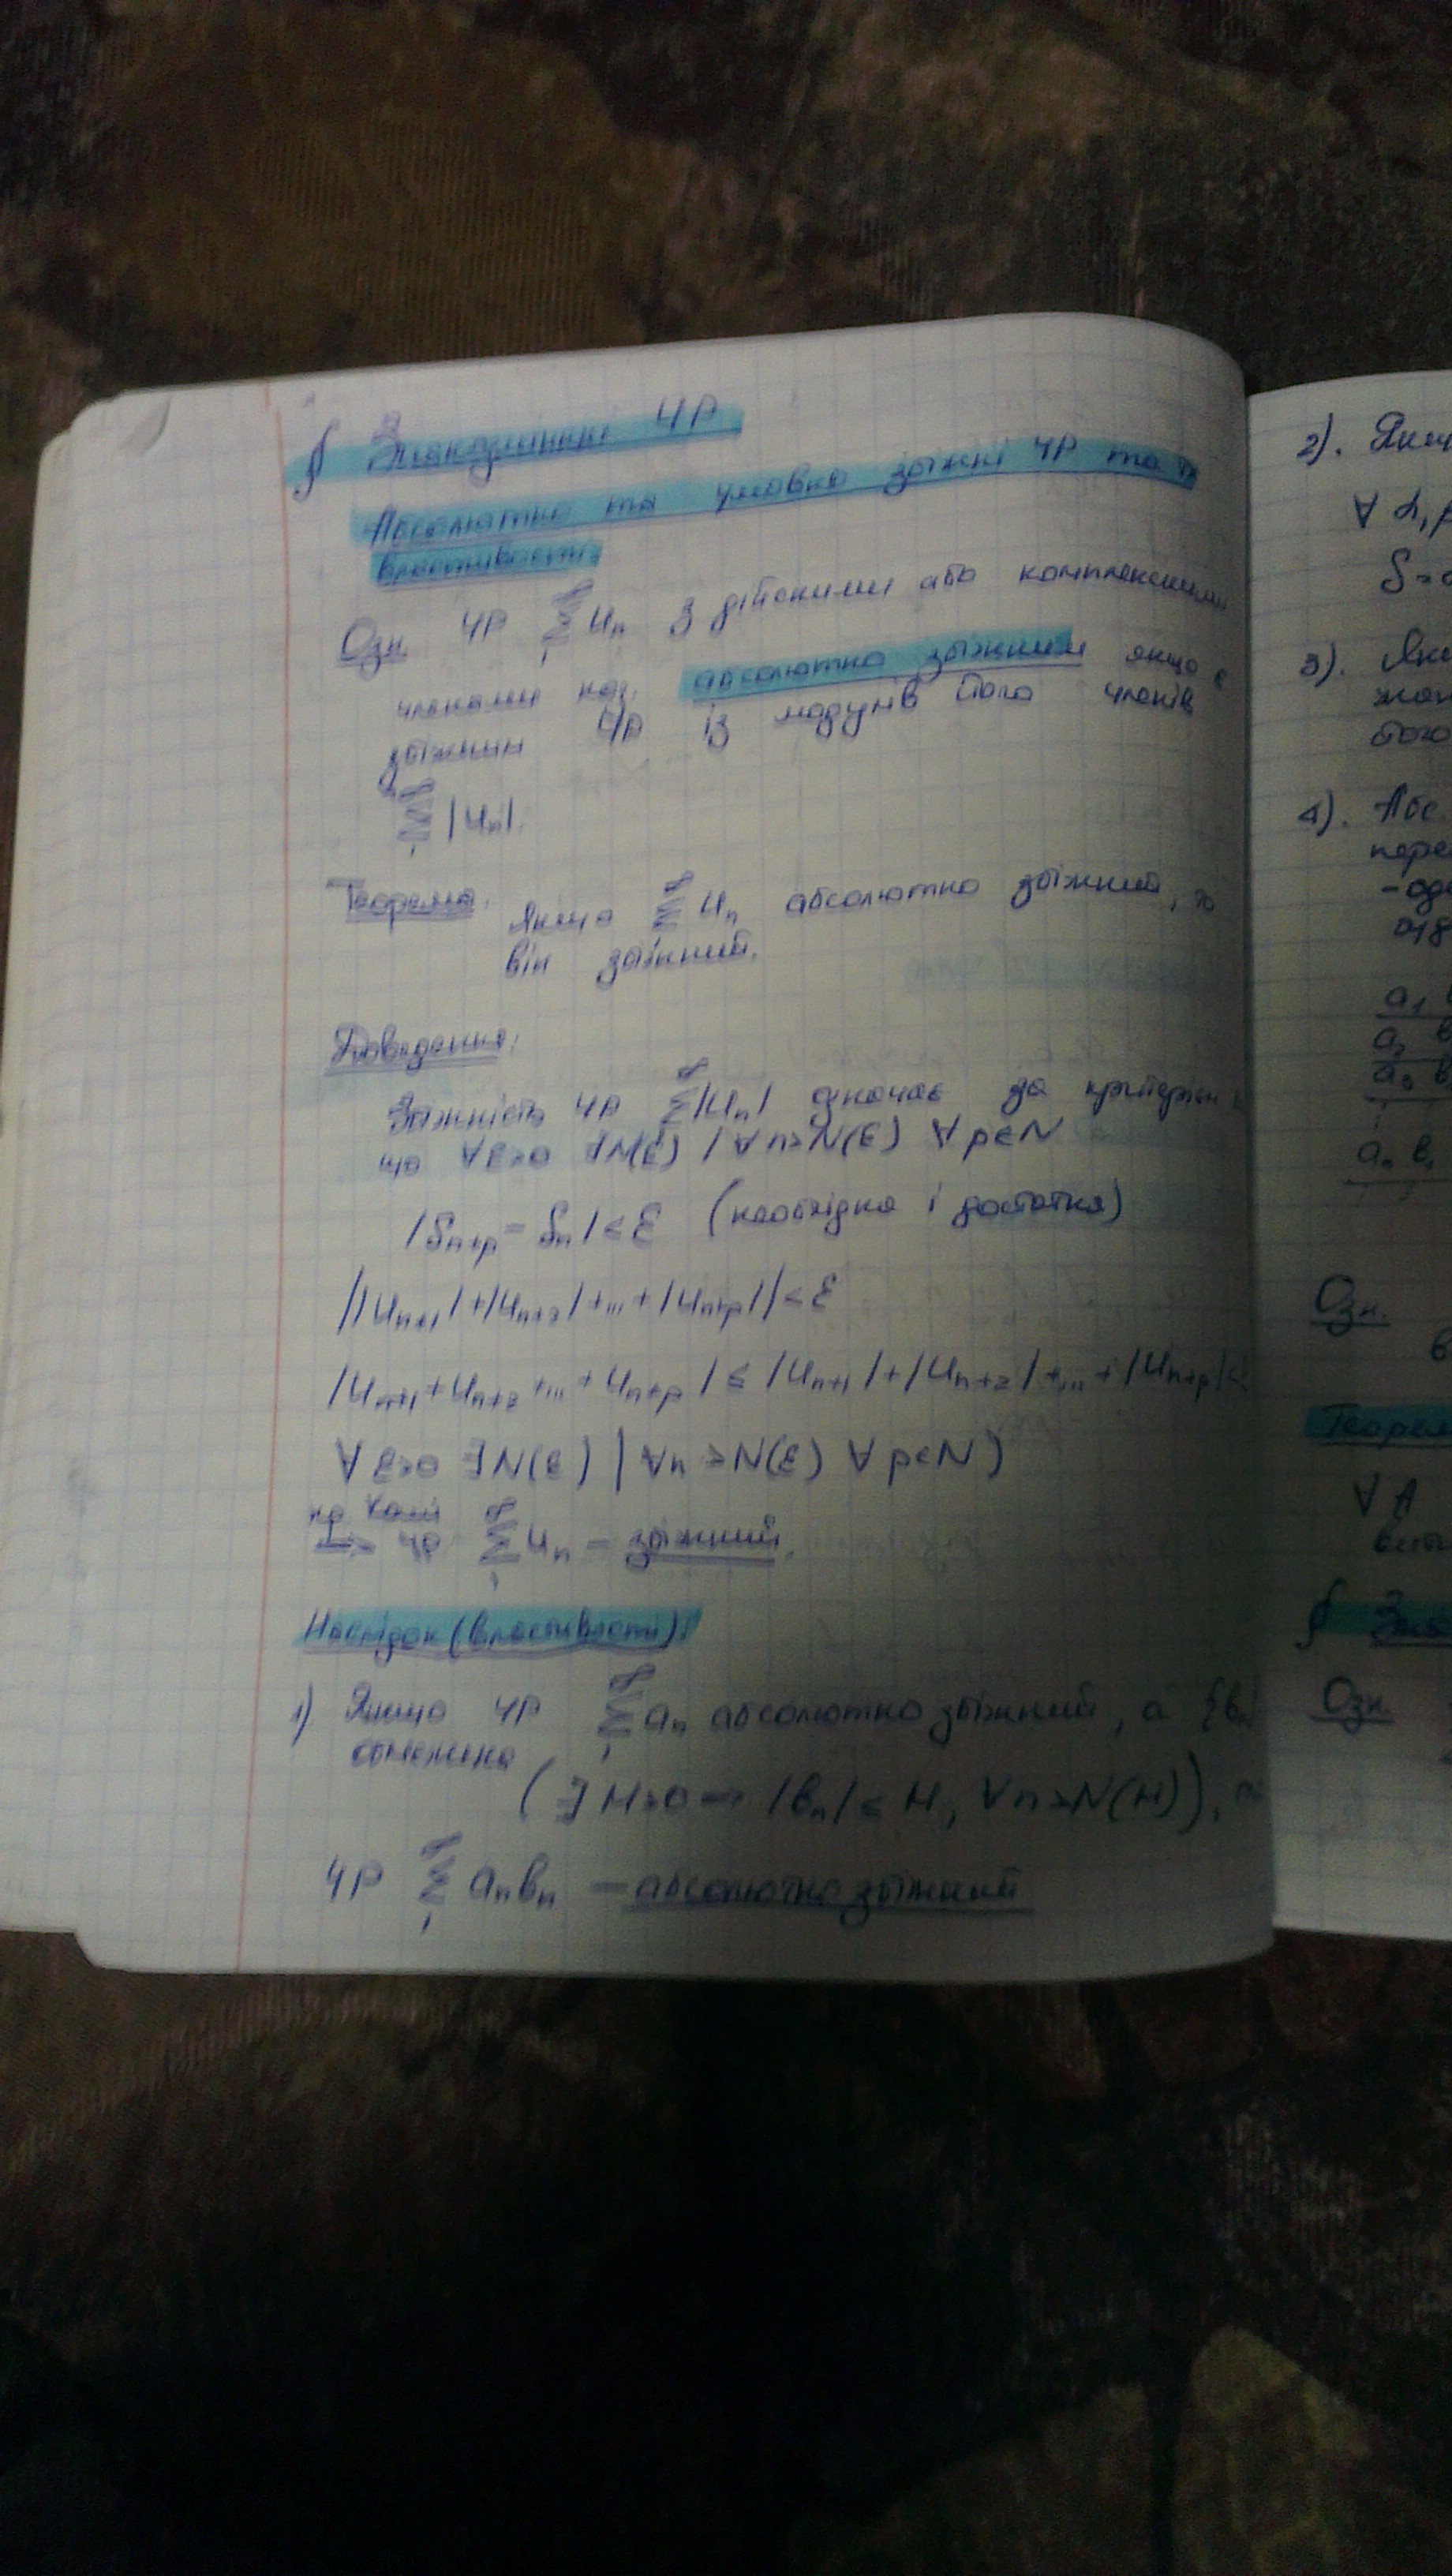 § Знакозмінні ЧР
Абсолютно та умовно збіжні ЧР та їх
властивості
Озн. ЧР ∞∑1 Uₙ з дійсними або комплексними
членами наз. абсолютно збіжним якщо є
збіжним ЧР із модулів його членів
∞∑1 |Uₙ|.
Теорема. Якщо ∞∑1 Uₙ абсолютно збіжний, то
він збіжний.
Доведення:
Збіжність ЧР ∞∑1 |Uₙ| означає за критерієм
що ∀ε>0 ∃N(ε) | ∀n>N(ε) ∀p∈N
|Sₙ₊ₚ - Sₙ| < ε (необхідна і достатня)
||Uₙ₊₁|+|Uₙ₊₂|+...+|Uₙ₊ₚ|| < ε
|Uₙ₊₁+Uₙ₊₂+...+Uₙ₊ₚ| ≤ |Uₙ₊₁|+|Uₙ₊₂|+...+|Uₙ₊ₚ|<
∀ε>0 ∃N(ε) | ∀n>N(ε) ∀p∈N)
кр. Коші
=> ЧР ∞∑1 Uₙ - збіжний.
Наслідок (властивості):
1) Якщо ЧР ∞∑1 aₙ абсолютно збіжний, а {bₙ}
обмежена
(∃H>0 → |bₙ| ≤ H, ∀n>N(H)),
ЧР ∞∑1 aₙbₙ - абсолютно збіжний
2). Якщ
∀ α,β
S=
3). Якщ
4). Абс
пере
a₁ b
a₂ b
a₃ b
aₙ b₁
Озн.
Теорем
∀ A
§ Зна
Озн.